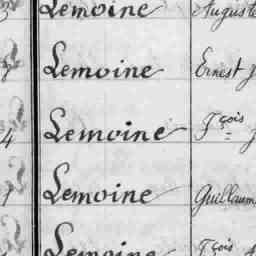 Lemoine Auguste
Lemoine Ernest J
4 Lemoine Fçois J
Lemoine Guillaum
Lemoine Fçois